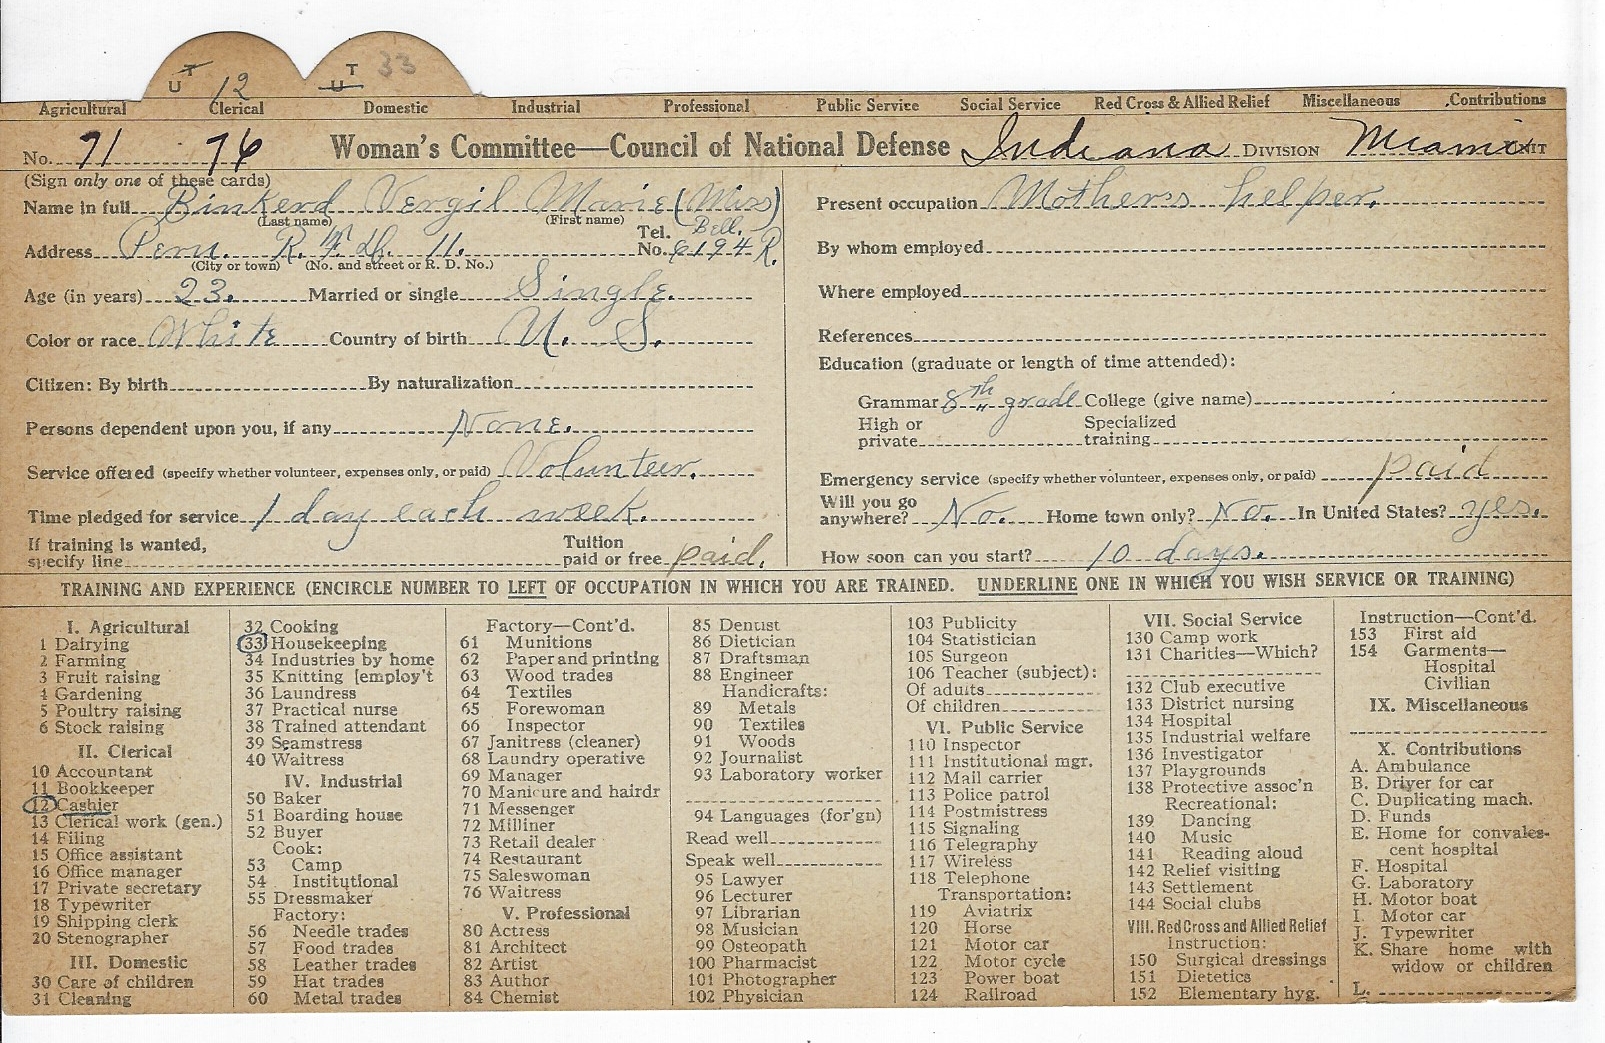 U T 12 U T 33
Agricultural Clerical Domestic Industrial Professional Public Service Social Service Red Cross & Allied Relief Miscellaneous Contributions
No. 71 76 Woman's Committee—Council of National Defense Indiana DIVISION Miami UNIT
(Sign only one of these cards)
Name in full Binkerd Vergil Marie (Miss)
(Last name) (First name)
Address Peru. R. F. D. 11. Tel. No. Bell. 6194 R.
(City or town) (No. and street or R. D. No.)
Age (in years) 23. Married or single Single.
Color or race White Country of birth U. S.
Citizen: By birth By naturalization
Persons dependent upon you, if any None.
Service offered (specify whether volunteer, expenses only, or paid) Volunteer.
Time pledged for service 1 day each week.
If training is wanted, specify line Tuition paid or free paid.
Present occupation Mothers helper.
By whom employed
Where employed
References
Education (graduate or length of time attended):
Grammar 8th grade College (give name)
High or private Specialized training
Emergency service (specify whether volunteer, expenses only, or paid) paid
Will you go anywhere? No. Home town only? No. In United States? yes.
How soon can you start? 10 days.
TRAINING AND EXPERIENCE (ENCIRCLE NUMBER TO LEFT OF OCCUPATION IN WHICH YOU ARE TRAINED. UNDERLINE ONE IN WHICH YOU WISH SERVICE OR TRAINING)
I. Agricultural
1 Dairying
2 Farming
3 Fruit raising
4 Gardening
5 Poultry raising
6 Stock raising
II. Clerical
10 Accountant
11 Bookkeeper
12 Cashier
13 Clerical work (gen.)
14 Filing
15 Office assistant
16 Office manager
17 Private secretary
18 Typewriter
19 Shipping clerk
20 Stenographer
III. Domestic
30 Care of children
31 Cleaning
32 Cooking
33 Housekeeping
34 Industries by home
35 Knitting [employ't
36 Laundress
37 Practical nurse
38 Trained attendant
39 Seamstress
40 Waitress
IV. Industrial
50 Baker
51 Boarding house
52 Buyer
Cook:
53 Camp
54 Institutional
55 Dressmaker
Factory:
56 Needle trades
57 Food trades
58 Leather trades
59 Hat trades
60 Metal trades
Factory—Cont'd.
61 Munitions
62 Paper and printing
63 Wood trades
64 Textiles
65 Forewoman
66 Inspector
67 Janitress (cleaner)
68 Laundry operative
69 Manager
70 Manicure and hairdr
71 Messenger
72 Milliner
73 Retail dealer
74 Restaurant
75 Saleswoman
76 Waitress
V. Professional
80 Actress
81 Architect
82 Artist
83 Author
84 Chemist
85 Dentist
86 Dietician
87 Draftsman
88 Engineer
Handicrafts:
89 Metals
90 Textiles
91 Woods
92 Journalist
93 Laboratory worker
94 Languages (for'gn)
Read well
Speak well
95 Lawyer
96 Lecturer
97 Librarian
98 Musician
99 Osteopath
100 Pharmacist
101 Photographer
102 Physician
103 Publicity
104 Statistician
105 Surgeon
106 Teacher (subject):
Of adults
Of children
VI. Public Service
110 Inspector
111 Institutional mgr.
112 Mail carrier
113 Police patrol
114 Postmistress
115 Signaling
116 Telegraphy
117 Wireless
118 Telephone
Transportation:
119 Aviatrix
120 Horse
121 Motor car
122 Motor cycle
123 Power boat
124 Railroad
VII. Social Service
130 Camp work
131 Charities—Which?
132 Club executive
133 District nursing
134 Hospital
135 Industrial welfare
136 Investigator
137 Playgrounds
138 Protective assoc'n
Recreational:
139 Dancing
140 Music
141 Reading aloud
142 Relief visiting
143 Settlement
144 Social clubs
VIII. Red Cross and Allied Relief
Instruction:
150 Surgical dressings
151 Dietetics
152 Elementary hyg.
Instruction—Cont'd.
153 First aid
154 Garments—
Hospital
Civilian
IX. Miscellaneous
X. Contributions
A. Ambulance
B. Driver for car
C. Duplicating mach.
D. Funds
E. Home for convales-
cent hospital
F. Hospital
G. Laboratory
H. Motor boat
I. Motor car
J. Typewriter
K. Share home with
widow or children
L.